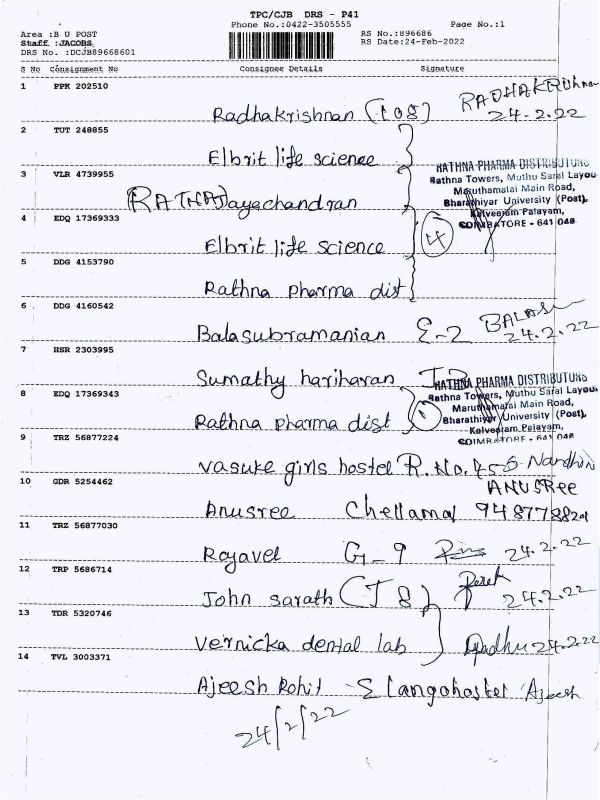 TPC/CJB DRS - P41
Phone No.:0422-3505555 Page No.:1
Area :B U POST RS No.:896686
Staff :JACOBS RS Date:24-Feb-2022
DRS No. :DCJB89668601
S No Consignment No Consignee Details Signature
1 PPK 202510
Radhakrishnan (108) RADHAKRishnan
24.2.22
2 TUT 248855
Elbrit life science
3 VLR 4739955
RATHNA PHARMA DISTRIBUTORS
Rathna Towers, Muthu Sarai Layou
Maruthamalai Main Road,
Bharathiyar University (Post),
Kalveeram Palayam,
COIMBATORE - 641 046
Jayachandran
4 EDQ 17369333
Elbrit life science 4
5 DDG 4153790
Rathna pharma dist
6 DDG 4160542
Balasubramanian E-2
24.2.22
7 HSR 2303995
Sumathy hariharan
RATHNA PHARMA DISTRIBUTORS
Rathna Towers, Muthu Sarai Layou
Maruthamalai Main Road,
Bharathiyar University (Post),
Kalveeram Palayam,
COIMBATORE - 641 046
8 EDQ 17369343
Rathna pharma dist
9 TRZ 56877224
Vasuke girls hostel R.No.45
10 GDR 5254462
ANUSRee
Anusree Chellamal
11 TRZ 56877030
Rajavel G-9 24.2.22
12 TRP 5686714
John sarath (J 8) 24.2.22
13 TDR 5320746
Vernicka dental lab 24.2.22
14 TVL 3003371
Ajeesh Rohit Elangohostel Ajeesh
24/2/22